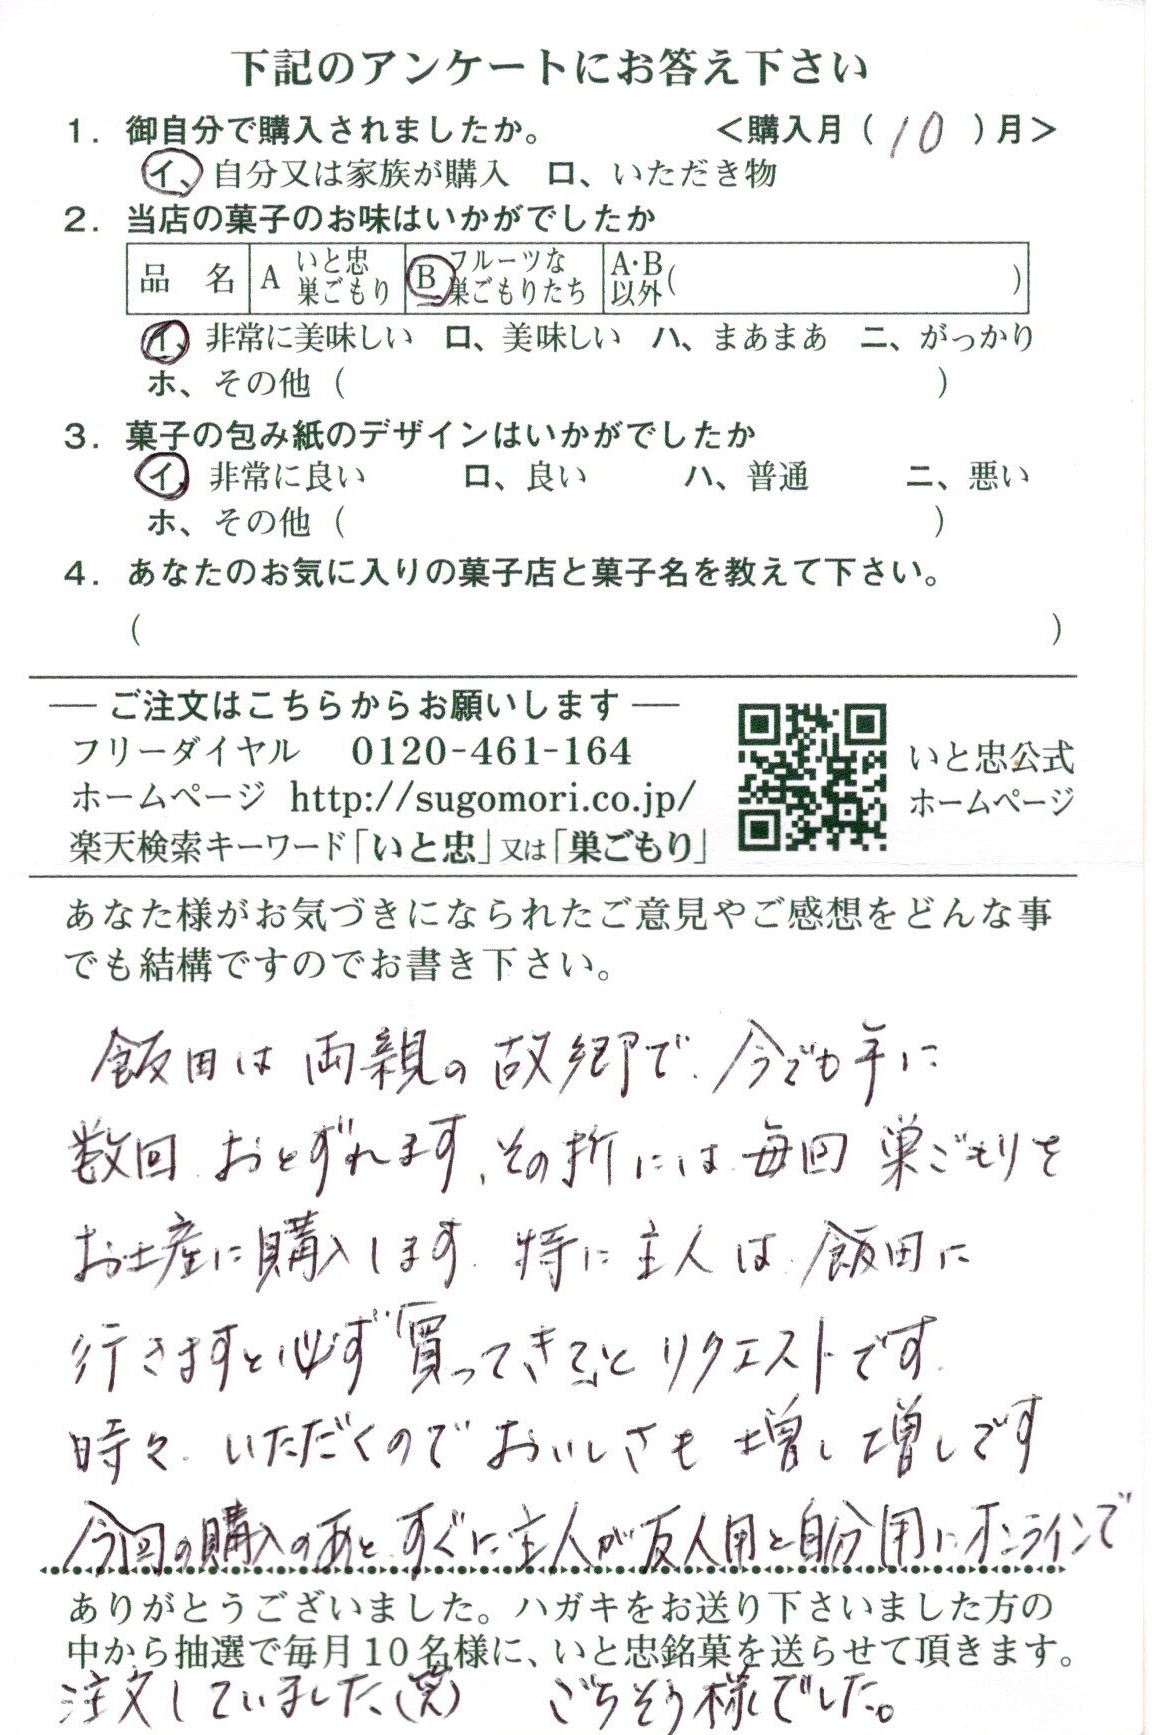 下記のアンケートにお答え下さい
1. 御自分で購入されましたか。 <購入月(10)月>
イ、自分又は家族が購入 ロ、いただき物
2. 当店の菓子のお味はいかがでしたか
品 名 A いと忠巣ごもり B フルーツな巣ごもりたち A・B以外( )
イ、非常に美味しい ロ、美味しい ハ、まあまあ ニ、がっかり
ホ、その他( )
3. 菓子の包み紙のデザインはいかがでしたか
イ、非常に良い ロ、良い ハ、普通 ニ、悪い
ホ、その他( )
4. あなたのお気に入りの菓子店と菓子名を教えて下さい。
( )
― ご注文はこちらからお願いします ―
フリーダイヤル 0120-461-164
ホームページ http://sugomori.co.jp/
楽天検索キーワード「いと忠」又は「巣ごもり」
いと忠公式
ホームページ
あなた様がお気づきになられたご意見やご感想をどんな事
でも結構ですのでお書き下さい。
飯田は両親の故郷で、今でも年に
数回、おとずれます、その折には毎回 巣ごもりを
お土産に購入します。特に主人は、飯田に
行きますと必ず「買ってきて」と リクエストです。
時々、いただくのでおいしさも 増し増しです
今回の購入のあと、すぐに主人が友人用と自分用にオンラインで
ありがとうございました。ハガキをお送り下さいました方の
中から抽選で毎月10名様に、いと忠銘菓を送らせて頂きます。
注文していました(笑) ごちそう様でした。